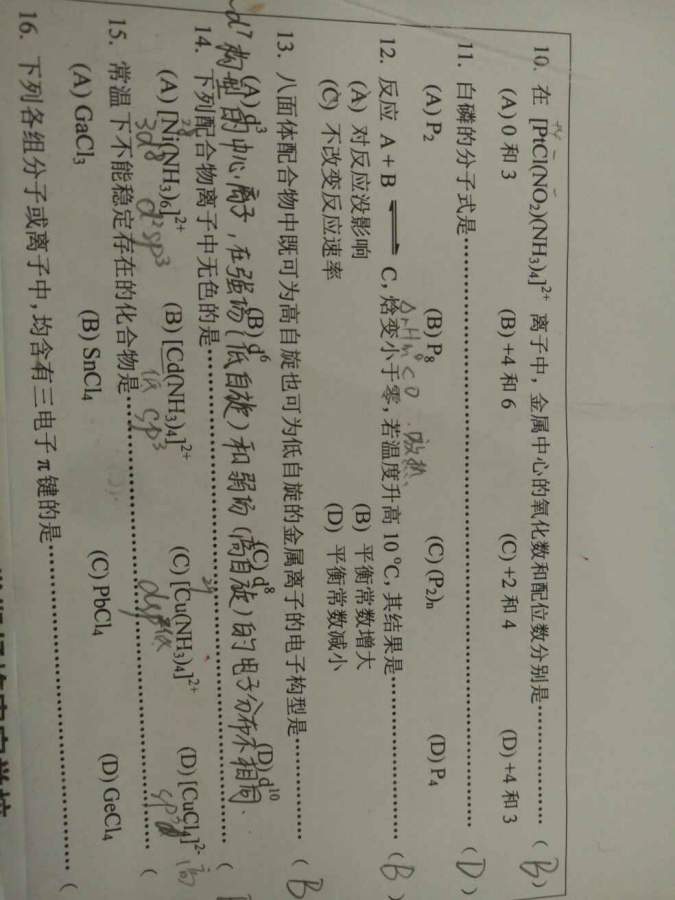 10. 在 [PtCl(NO₂)(NH₃)₄]²⁺ 离子中，金属中心的氧化数和配位数分别是………… ( B )
(A) 0 和 3 (B) +4 和 6 (C) +2 和 4 (D) +4 和 3
11. 白磷的分子式是………… ( D )
(A) P₂ (B) P₈ (C) (P₂)ₙ (D) P₄
12. 反应 A + B ⇌ C，焓变小于零，若温度升高 10 ℃，其结果是………… ( B )
<0 放热、
(A) 对反应没影响 (B) 平衡常数增大
(C) 不改变反应速率 (D) 平衡常数减小
13. 八面体配合物中既可为高自旋也可为低自旋的金属离子的电子构型是………… ( B
(A) d³ (B) d⁶ (C) d⁸ (D) d¹⁰
d⁷构型的中心离子，在强场(低自旋)和弱场(高自旋)的电子分布不相同.
14. 下列配合物离子中无色的是………… (
28 29
(A) [Ni(NH₃)₆]²⁺ (B) [Cd(NH₃)₄]²⁺ (C) [Cu(NH₃)₄]²⁺ (D) [CuCl₄]²⁻ 高
3d⁸ d²sp³ 低 sp³
15. 常温下不能稳定存在的化合物是………… (
(A) GaCl₃ (B) SnCl₄ (C) PbCl₄ (D) GeCl₄
16. 下列各组分子或离子中，均含有三电子 π 键的是………… (